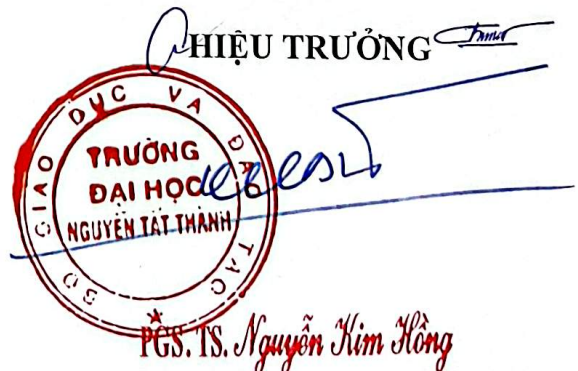 HIỆU TRƯỞNG
BỘ GIÁO DỤC VÀ ĐÀO TẠO
TRƯỜNG
ĐẠI HỌC
NGUYỄN TẤT THÀNH
PGS. TS. Nguyễn Kim Hồng